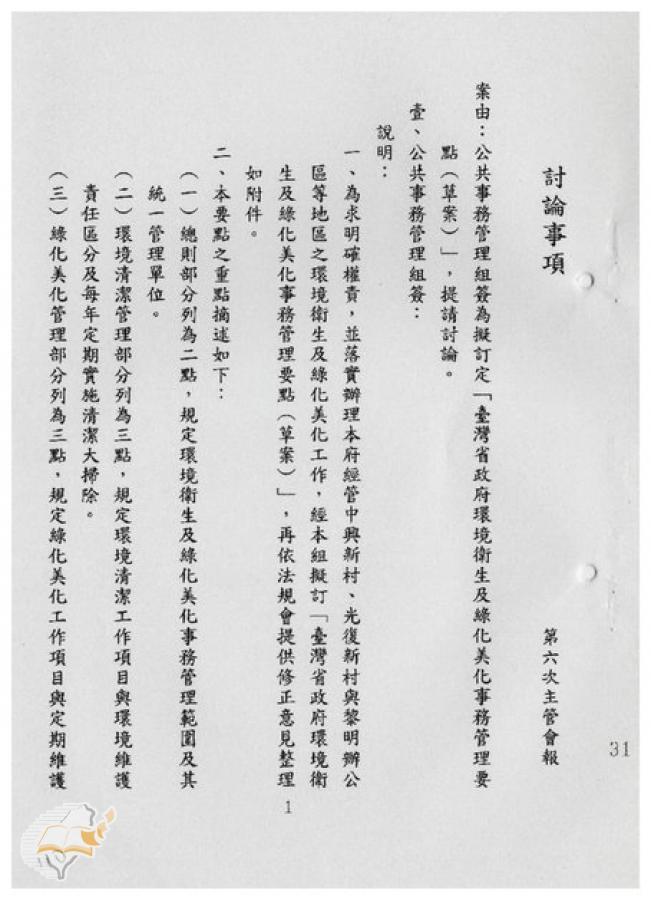 討論事項
第六次主管會報
案由：公共事務管理組簽為擬訂定「臺灣省政府環境衛生及綠化美化事務管理要
點（草案）」，提請討論。
壹、公共事務管理組簽：
說明：
一、為求明確權責，並落實辦理本府經管中興新村、光復新村與黎明辦公
區等地區之環境衛生及綠化美化工作，經本組擬訂「臺灣省政府環境衛
生及綠化美化事務管理要點（草案）」，再依法規會提供修正意見整理
如附件。
二、本要點之重點摘述如下：
（一）總則部分列為二點，規定環境衛生及綠化美化事務管理範圍及其
統一管理單位。
（二）環境清潔管理部分列為三點，規定環境清潔工作項目與環境維護
責任區分及每年定期實施清潔大掃除。
（三）綠化美化管理部分列為三點，規定綠化美化工作項目與定期維護
1
31